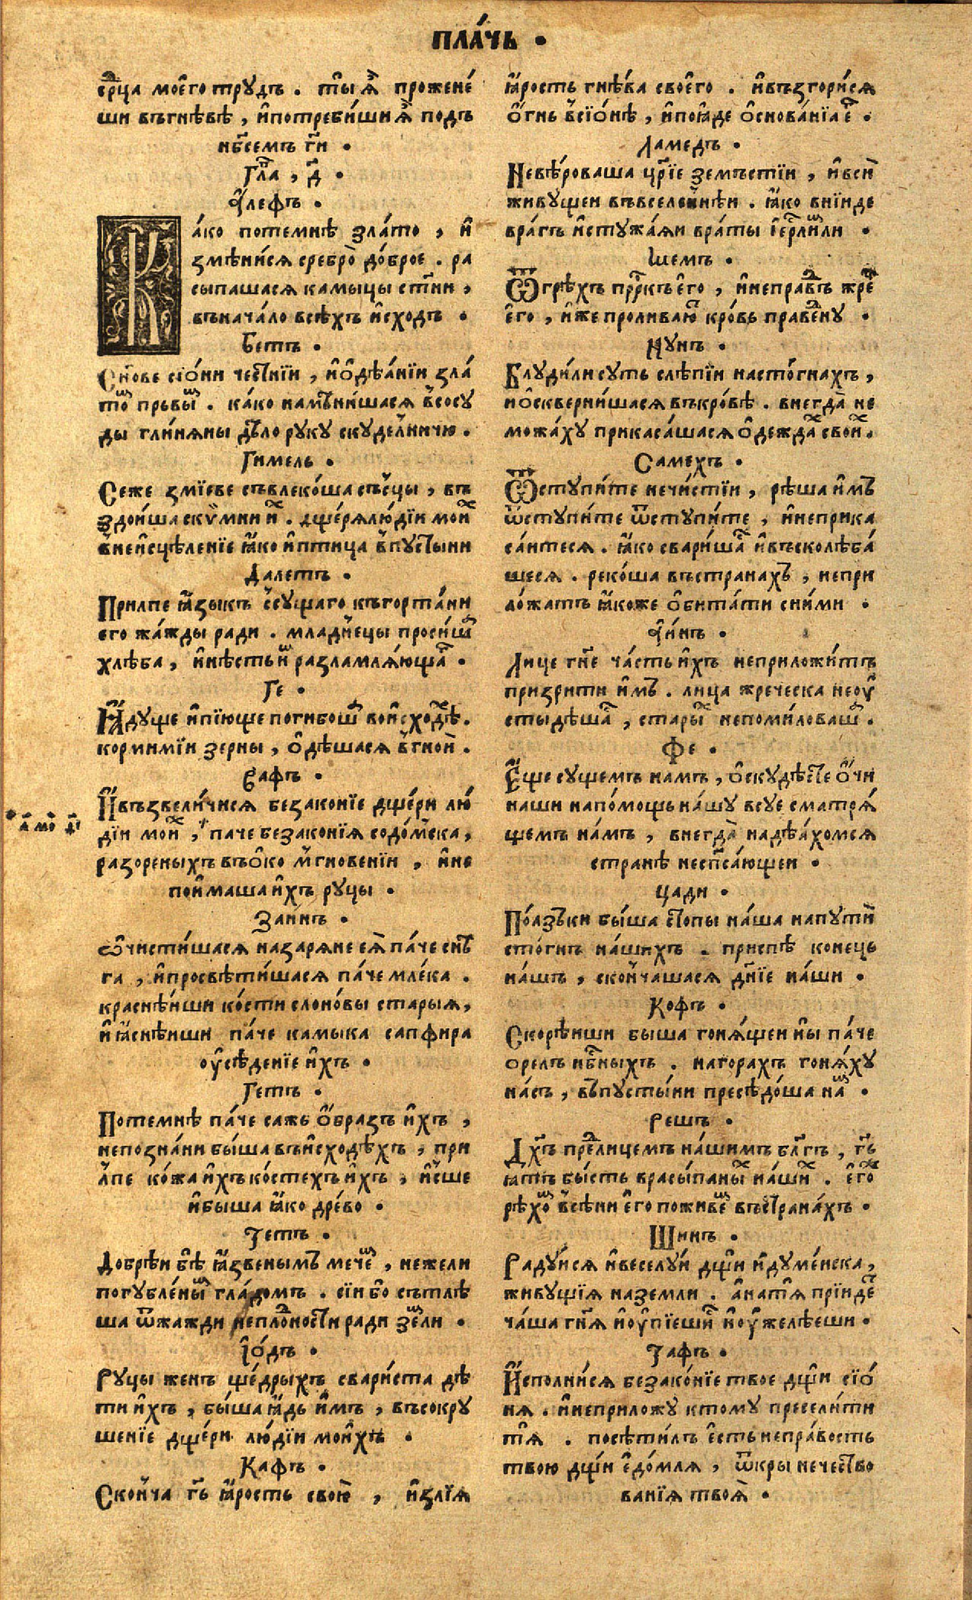 плачь •
ср҃ца моего трудъ . ты ѧ҆̀ прожене́
ши въгнѣвѣ , и҆потреби́ши ѧ҆̀ подъ
нб҃семъ гн҃и •
Гл҃а , д҃ •
А҆лефъ •
Ка́ко потемнѣ зла́то , и҆
змѣни́сѧ сребро̀ до́брое . ра
сыпашасѧ камыцы ст҃ии ,
въначало всѣхъ и҆сходъ •
Бетъ •
Сн҃ове сїо́ни чест҇нїи , и҆о҆дѣѧ́нїи зла
то́ первы . ка́ко намъни́шасѧ в҆сосу
ды гли́нѧны дѣ́ло руку скуде́лничю .
Гимель •
Се́же змїеве съвлеко́ша съсцы , въ
здои́ша ску́мни и҆х . дщерѧлю́дїи мои́х
в҆неи҆сцѣле́нїе ꙗ҆́ко и҆пти́ца в҆пусты́ни
Далетъ •
Прилпе ꙗ҆зы́къ с҆су́щаго къгорта́ни
его жа́жды ради . младе́нецы проси́ша
хлѣ́ба , и҆нѣ́сть и҆м разламлѧ́ющаго •
Ге •
Ꙗ҆ду́ще и҆пїю́ще погибоша воисходѣх .
корми́мїи зерны , о҆дѣ́шасѧ в҆гно́и .
Вафъ •
И҆възвели́чисѧ безако́нїе дще́ри лю́
дїи мои́х , паче безако́нїѧ содо́мска ,
разореныхъ въо́ко м҆гнове́нїи , и҆не
пои҆ма́ша и҆́хъ ру́цы •
Заинъ •
Ѡ҆чисти́шасѧ назарѧ́не еѧ̀ па́че снѣ́
га , и҆просвѣти́шасѧ па́че мле́ка .
краснѣ́иши ко́сти слоно́вы старыѧ ,
и҆ꙗ҆снѣиши па́че камыка сапфира
оу҆сѣде́нїе и҆́хъ •
Гетъ •
Потемнѣ паче сажѣ о҆́бразъ и҆́хъ ,
непозна́ни бы́ша въи҆схо́дѣхъ , при
лпе ко́жа и҆́хъ ко́стехъ и҆́хъ , и҆́сше
и҆бы́ша ꙗ҆́ко дре́во •
Тетъ •
До́брѣи бѣ̀ ꙗ҆́звенымъ мече́м , нежели
погубле́ным гла́домъ . сїи бо сътлѣ
ша ѿжажди непло́дности ради земли •
І҆о́дъ •
Руцы женъ ще́дрыхъ свари́ста дѣ́
ти и҆́хъ , бы́ша ꙗ҆́дь и҆́мъ , въсокру
ше́нїе дще́ри лю́дїи мои́хъ •
Кафъ •
Сконча гд҇ь ꙗ҆рость свою̀ , и҆злїѧ
ꙗ҆́рость гнѣ́ва своего̀ . и҆възгори́сѧ
о҆́гнь в҆сїо́нѣ , и҆поꙗ҆де о҆снова́нїѧ е҆го̀ •
Ламедъ •
Невѣ́роваша цр҃їе земъсти́и , и҆вси̑
живу́щеи въвселе́ннѣи . ꙗ҆́ко вни́иде
вра́гъ и҆стужа́ѧи вра́ты і҆ер҇лимли •
Мемъ •
Ѿгрѣ́хъ прор҇къ его̀ , и҆непра́вдъ жрец
его̀ , и҆́же пролива́ю кро́вь праведну •
Нунъ •
Блуди́ли суть слѣпїи насто́гнахъ ,
и҆о҆скверни́шасѧ въкро́вѣ . внегда̀ не
можа́ху прикаса́шасѧ о҆де́ждах свои́х .
Самехъ •
Ѿступи́те нечи́стїи , рѣ́ша и҆́мъ
ѿступи́те ѿступи́те , и҆неприка
са́итесѧ . ꙗ҆́ко свариша и҆въсколѣба́
шесѧ . реко́ша въстранахъ , непри
ло́жатъ ꙗ҆́коже о҆бита́ти сни́ми •
А҆́инъ •
Лице гд҇не ча́сть и҆́хъ неприло́житъ
призри́ти и҆́мъ . ли́ца жре́ческа неоу҆
стыдѣ́ша , ста́рых непоми́ловаша .
Фе •
Е҆ще су́щемъ намъ , о҆скудѣ́сте о҆́чи
на́ши напо́мощь на́шу всуе сматрѧ́
щемъ на́мъ , внегда̀ надѣ́ахомсѧ
странѣ несп҃са́ющеи •
Цади •
Поѧзъки бы́ша стопы на́ша напути̑
сто́гнъ на́шихъ . приспѣ̀ коне́цъ
на́шъ , сконча́шасѧ дн҃їе на́ши •
Кофъ •
Скорѣ́иши бы́ша гонѧ́щеи ны па́че
о́релъ нб҃ныхъ . нагора́хъ гонѧ́ху
на́съ , въпусты́ни преседо́ша на́м •
Решъ •
Дх҃ъ пре́дли́цемъ на́шимъ бл҃гъ , гд҇ь
ꙗ҆́тъ бы́сть врасы́паных на́ших . е҆го́же
рѣ́хом в҆сѣ́ни его поживе́м въстрана́хъ •
Шинъ •
Ра́дуисѧ и҆весели́сѧ дщи и҆думе́иска ,
живу́щїѧ назе́мли . а҆натѧ̀ прїиде́т
ча́ша гн҃ѧ и҆оу҆пїе́ши и҆оу҆желѣ́еши •
Тафъ •
И҆спо́лнисѧ безако́нїе твое дщи сїо́
нѧ . и҆неприложу́ ктому преселити
тѧ̀ . посѣти́лъ есть непра́вость
твою дщи е҆до́млѧ , ѿкры нечество
ванїѧ твоѧ̀ •